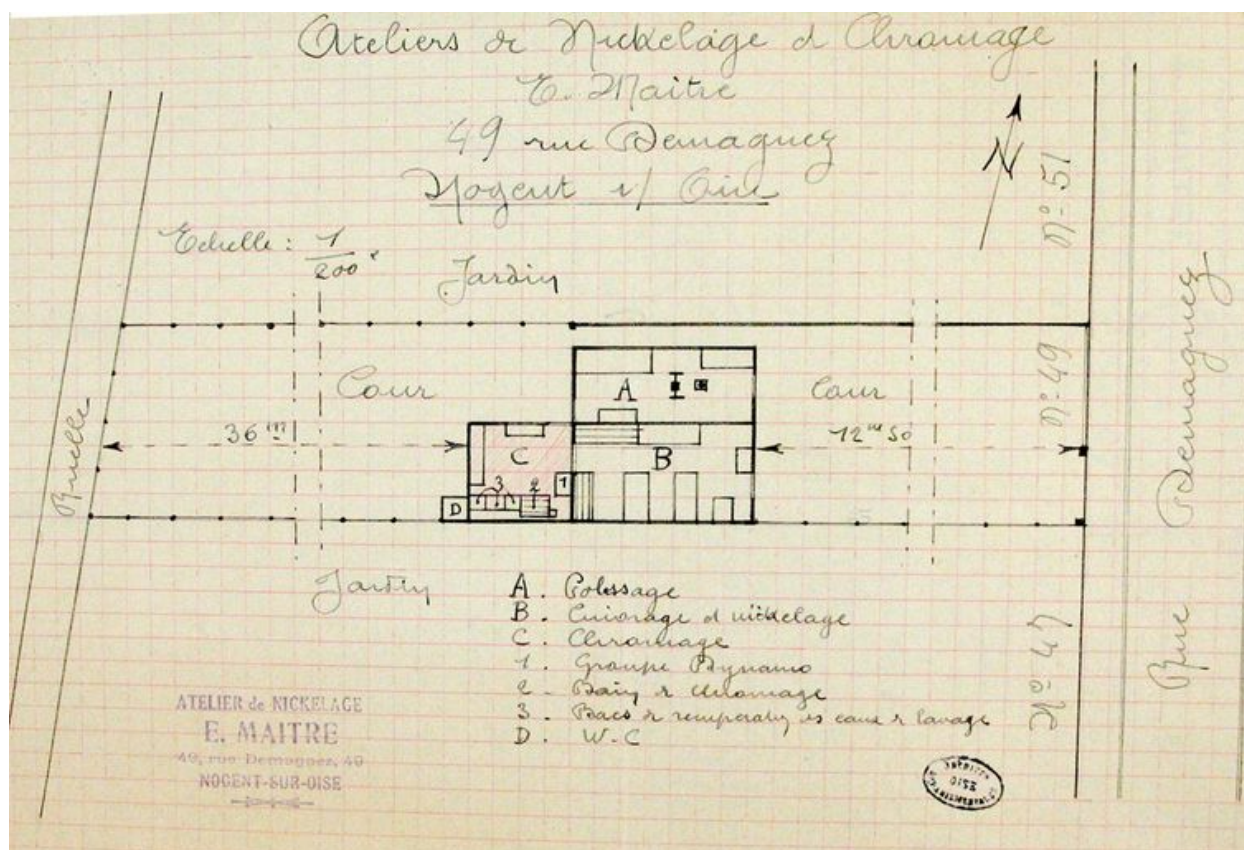 Ateliers de Nickelage et Chromage
E. Maitre
49 rue Demagnez
Nogent s/ Oise
N
Echelle : 1/200e
Jardin
N° 51
Cour
A
Cour
N° 49
36 m
12 m 50
C
B
3
2
1
D
Ruelle
Rue Demagnez
Jardin
N° 47
A. Polissage
B. Cuivrage et nickelage
C. Chromage
1. Groupe Dynamo
2. Bain de chromage
3. Bacs de récupération des eaux de lavage
D. W.C
ATELIER de NICKELAGE
E. MAITRE
49, rue Demagnez, 49
NOGENT-SUR-OISE